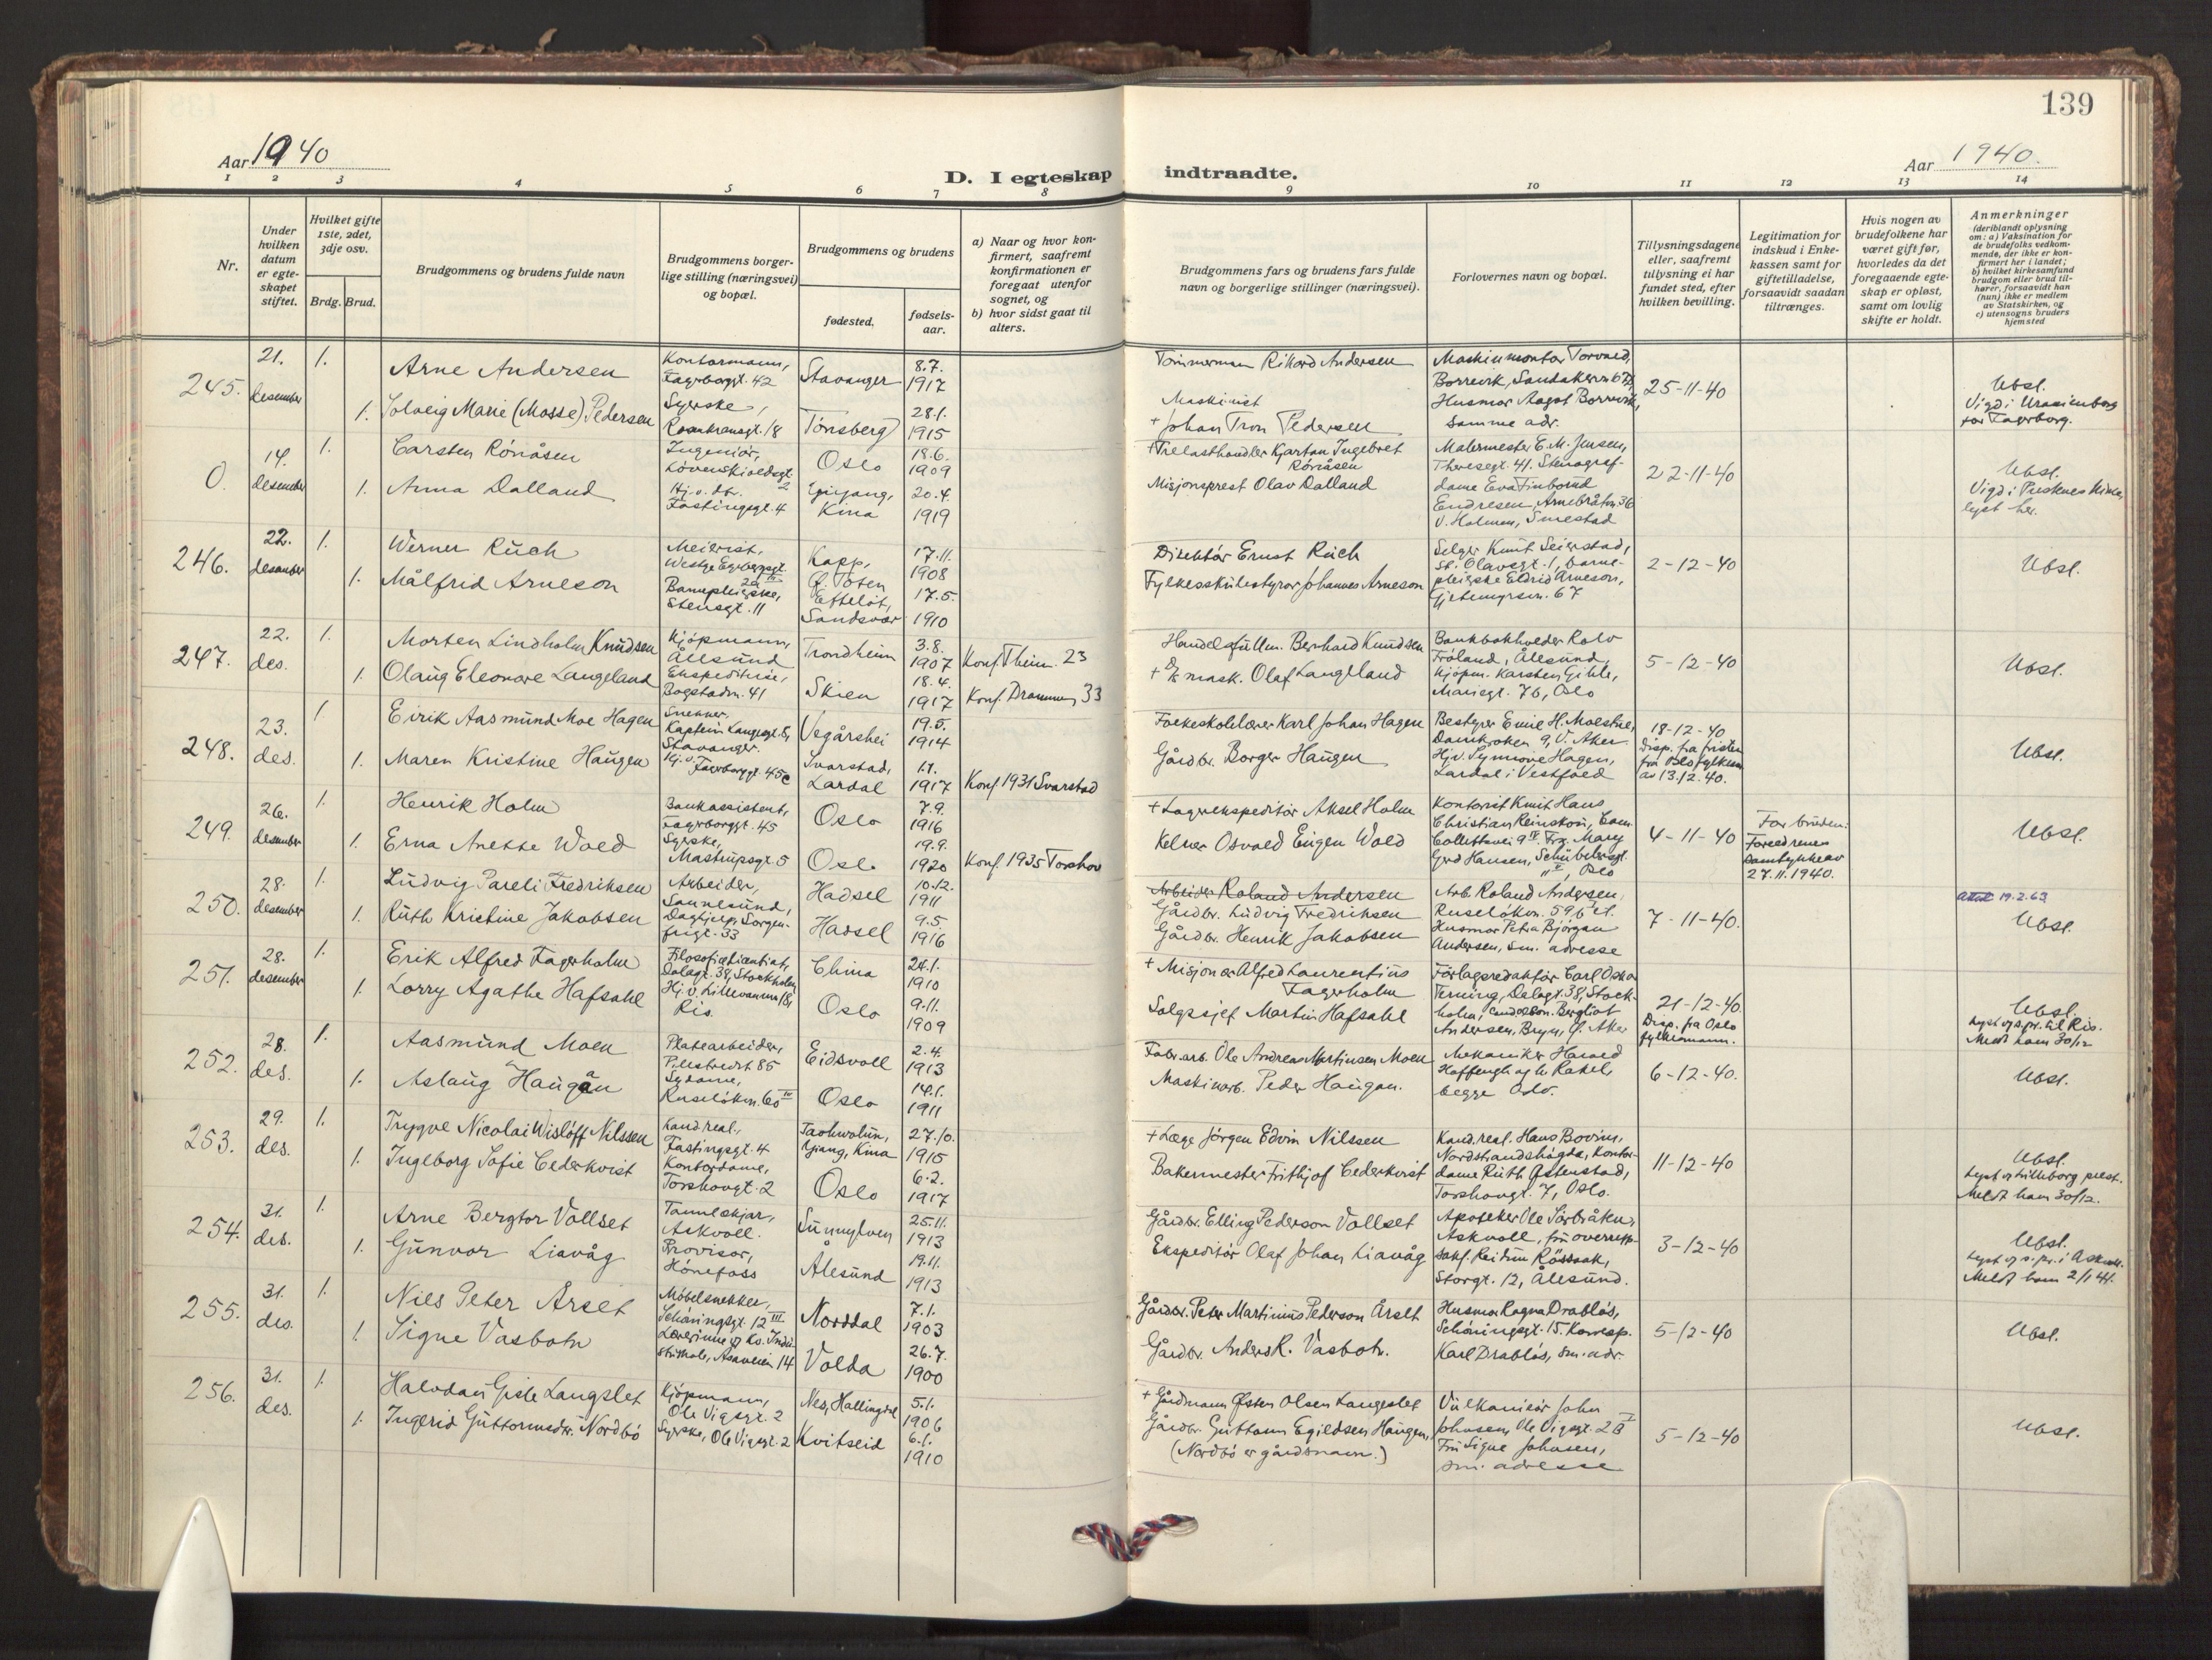 139
Aar 1940
D. I egteskap indtraadte.
Aar 1940.
1 2 3 4 5 6 7 8 9 10 11 12 13 14
Nr.
Under hvilken datum er egteskapet stiftet.
Hvilket gifte 1ste, 2det, 3dje osv.
Brdg. Brud.
Brudgommens og brudens fulde navn
Brudgommens borgerlige stilling (næringsvei) og bopæl.
Brudgommens og brudens
fødested.
fødselsaar.
a) Naar og hvor konfirmert, saafremt konfirmationen er foregaat utenfor sognet, og
b) hvor sidst gaat til alters.
Brudgommens fars og brudens fars fulde navn og borgerlige stillinger (næringsvei).
Forlovernes navn og bopæl.
Tillysningsdagene eller, saafremt tillysning ei har fundet sted, efter hvilken bevilling.
Legitimation for indskud i Enkekassen samt for giftetilladelse, forsaavidt saadan tiltrænges.
Hvis nogen av brudefolkene har været gift før, hvorledes da det foregaaende egteskap er opløst, samt om lovlig skifte er holdt.
Anmerkninger (deriblandt oplysning om: a) Vaksination for de brudefolks vedkommende, der ikke er konfirmert her i landet; b) hvilket kirkesamfund brudgom eller brud tilhører, forsaavidt han (hun) ikke er medlem av Statskirken, og c) utensogns bruders hjemsted
245. 21. desember 1. Arne Andersen Kontormann, Fagerborggt. 42 Stavanger 8.7. 1917 Tømmerman Rikard Andersen
1. Solveig Marie (Mosse) Pedersen Syerske, Rosenkransgt. 18 Tønsberg 28.1. 1915 Maskinist + Johan Tron Pedersen
Maskinmontør Torvald Borrevik, Sandakervn 67, Husmor Aagot Borrevik, samme adr. 25-11-40 Ubsl. Vigd i Uranienborg for Fagerborg.
0. 14. desember 1. Carsten Rönåsen Ingeniør, Løvenskioldsgt. 2 Oslo 18.6. 1909 + Trelasthandler Kjartan Ingebret Rönåsen
1. Anna Dalland Hj.v. df. Fastingsgt. 4 Kina 20.4. 1919 Misjonsprest Olav Dalland
Malermester E. M. Jensen, Theresegt. 41. Stenografdame Eva Endresen, Arnebråtvn 36 V. Holmen, Smestad 22-11-40 Ubsl. Vigd i kirke, lyst her.
246. 22. desember 1. Werner Ruch Meierist, Vestre Kapp, Ø. Toten 17.11. 1908 Direktør Ernst Ruch
1. Målfrid Arneson Barnepleierske, Stensgt. 11 Efteløt, Sandsvær 17.5. 1910 Fylkesskulestyrar Johannes Arneson
Selger Knut Seierstad, St. Olavsgt. 1, barnepleierske Eldrid Arneson, Gjetemyrsvn. 67 2-12-40 Ubsl.
247. 22. des. 1. Morten Lindholm Knudsen Kjöpmann, Ålesund Trondheim 3.8. 1907 Konf. Theim. 23 Handelsfullm. Bernhard Knudsen
1. Olaug Eleonore Langeland Ekspeditrise, Bogstadvn. 41 Skien 18.4. 1917 Konf. Drammen 33 + mask. Olaf Langeland
Bankbokholder Rolv Fröland, Ålesund, Kjöpm. Karsten Gihle, Mariesgt. 76, Oslo 5-12-40 Ubsl.
248. 23. des. 1. Eirik Aasmund Moe Hagen Snekker, Kaptein Langesgt. 8, Stavanger. Vegårshei 19.5. 1914 Folkeskolelærer Karl Johan Hagen
1. Maren Kristine Haugen Hj.v. Fagerborggt. 45c Svarstad, Lardal 1.1. 1917 Konf. 1931 Svarstad Gårdbr. Borger Haugen
Bestyrer Emil H. Moestue, Damkroken 9, V. Aker. Hj.v. Synnøve Hagen, Lardal i Vestfold 18-12-40 Disp. fra fristen fra Oslo fylkesm. av 13.12.40. Ubsl.
249. 26. desember 1. Henrik Holm Bankassistent, Fagerborggt. 45 Oslo 7.9. 1916 + Lagerekspeditör Aksel Holm
1. Erna Anette Wold Syerske, Mastrupsgt. 5 Oslo 19.9. 1920 Konf. 1935 Torshov Kelner Osvald Eugen Wold
Kontorist Knut Hans Christian Reinskou, Cam. Collettsvei 9 IV Frz. Mary Gerd Hansen, Schübelersgt. II, Oslo 4-11-40 For bruden: Foreldrenes samtykke av 27.11.1940. Ubsl.
250. 28. desember 1. Ludvig Pareli Fredriksen Arbeider, Sannesund, Hadsel 10.12. 1911 Arbeider Roland Andersen Gårdbr. Ludvig Fredriksen
1. Ruth Kristine Jakobsen Daghjelp, Sorgenfrigt. 33 Hadsel 9.5. 1916 Gårdbr. Henrik Jakobsen
Arb. Roland Andersen, Ruseløkvn. 59, Husmor Petra Bjørgan Andersen, sm. adresse 7-11-40. 19.2.63 Ubsl.
251. 28. desember 1. Erik Alfred Fagerholm Filosofielicentiat, Dalagt. 38, Stockholm China 24.1. 1910 + Misjonær Alfred Laurentius Fagerholm
1. Lorry Agathe Hafsahl Hj.v. Lillevannsvn 18, Ris. Oslo 9.11. 1909 Salgssjef Martin Hafsahl
Förlagsredaktör Carl Oskar Terning, Dalagt. 38, Stockholm, Cand. oecon. Bergliot Andersen, Bryn, Ø. Aker 21-12-40. Disp. fra Oslo fylkesmann. Ubsl. Lyst og s.pr. til Ris. Meldt ham 30/12
252. 28. des. 1. Aasmund Moen Platearbeider, Pilestredet 85 Eidsvoll 2.4. 1913 Fabr.arb. Ole Andreas Martinsen Moen
1. Aslaug Haugan Sydame, Ruseløkvn. 60 IV Oslo 14.1. 1911 Maskinarb. Peder Haugan.
Mekaniker Harald Hoffengh og h. Rakel, begge Oslo. 6-12-40. Ubsl.
253. 29. des. 1. Trygve Nicolai Wisløff Nilssen Kand.real., Fastingsgt. 4 Taohwalun, Kina 27.10. 1915 + Læge Jørgen Edvin Nilssen
1. Ingeborg Sofie Cederkvist Kontordame, Torshovgt. 2 Oslo 6.2. 1917 Bakermester Frithjof Cederkvist
Kand.real. Hans Bovim, Nordstrandshøgda, Kontordame Ruth Østenstad, Torshovgt. 7, Oslo. 11-12-40 Ubsl. Lyst og prest. Meldt ham 30/12.
254. 31. des. 1. Arne Bergtor Vollset Tannlækjar, Askvoll. Sunnylven 25.11. 1913 Gårdbr. Elling Pederson Vollset
1. Gunvor Liavåg Provisor, Hönefoss Ålesund 19.11. 1913 Ekspeditör Olaf Johan Liavåg
Apoteker Ole Sörbråten, Askvoll, fru overrettssakf. Reidun Rössaak, Storgt. 12, Ålesund. 3-12-40 Ubsl. Lyst og s.pr. i Askvoll. Meldt ham 2/1 41.
255. 31. des. 1. Nils Peter Årset Møbelsnekker, Schöningsgt. 12 III Norddal 7.1. 1903 Gårdbr. Peter Martinus Pederson Årset
1. Signe Vasbotn Lærerinne v. Kv. Industriskole, Asaveien 14 Volda 26.7. 1900 Gårdbr. Anders R. Vasbotn.
Husmor Ragna Drabløs, Schöningsgt. 15. Korresp. Karl Drabløs, sm. adr. 5-12-40 Ubsl.
256. 31. des. 1. Halvdan Gisle Langslet Kjöpmann, Ole Vigsgt. 2 Nes, Hallingdal 5.1. 1906 + Gårdmann Østen Olsen Langeslet
1. Ingerid Guttormsdtr. Nordbö Syerske, Ole Vigsgt. 2 Kvitseid 6.1. 1910 Gårdbr. Guttorm Egildsen Haugen, (Nordbö er gårdsnavn.)
Vulkanisør John Johnsen, Ole Vigsgt. 2B Fru Signe Johnsen, sm. adresse 5-12-40 Ubsl.